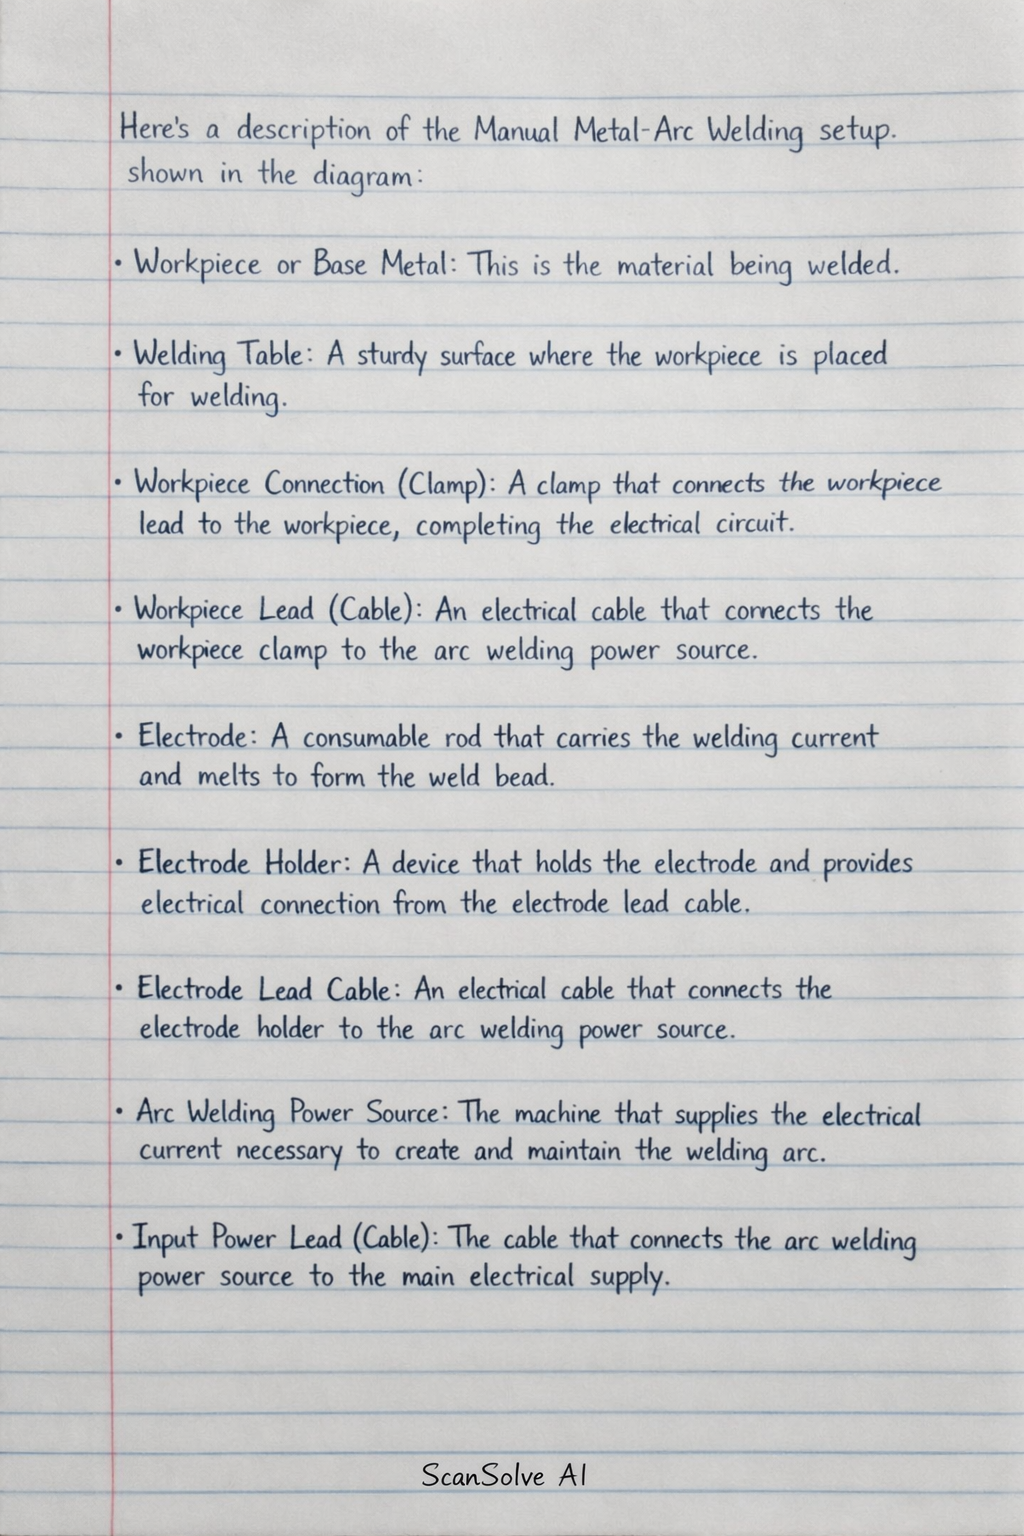 Here's a description of the Manual Metal-Arc Welding setup.
shown in the diagram:
• Workpiece or Base Metal: This is the material being welded.
• Welding Table: A sturdy surface where the workpiece is placed
for welding.
• Workpiece Connection (Clamp): A clamp that connects the workpiece
lead to the workpiece, completing the electrical circuit.
• Workpiece Lead (Cable): An electrical cable that connects the
workpiece clamp to the arc welding power source.
• Electrode: A consumable rod that carries the welding current
and melts to form the weld bead.
• Electrode Holder: A device that holds the electrode and provides
electrical connection from the electrode lead cable.
• Electrode Lead Cable: An electrical cable that connects the
electrode holder to the arc welding power source.
• Arc Welding Power Source: The machine that supplies the electrical
current necessary to create and maintain the welding arc.
• Input Power Lead (Cable): The cable that connects the arc welding
power source to the main electrical supply.
ScanSolve AI